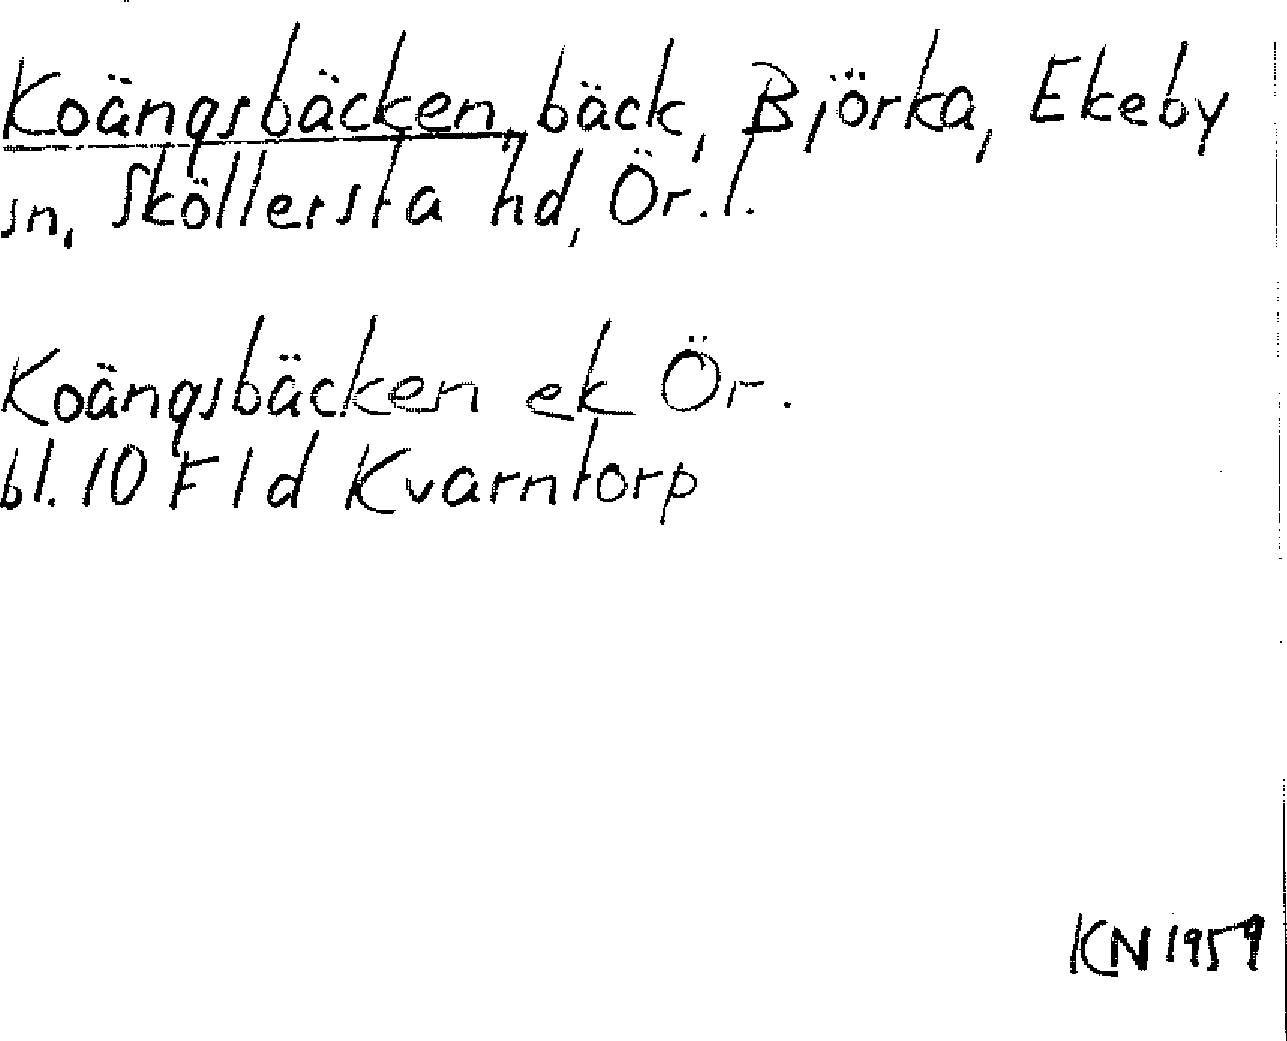 Koängsbäcken, bäck, Björka, Ekeby
sn, Sköllersta hd, Ör. l.
Koängsbäcken ek Ör.
bl. 10 F 1 d Kvarntorp
KN 1959